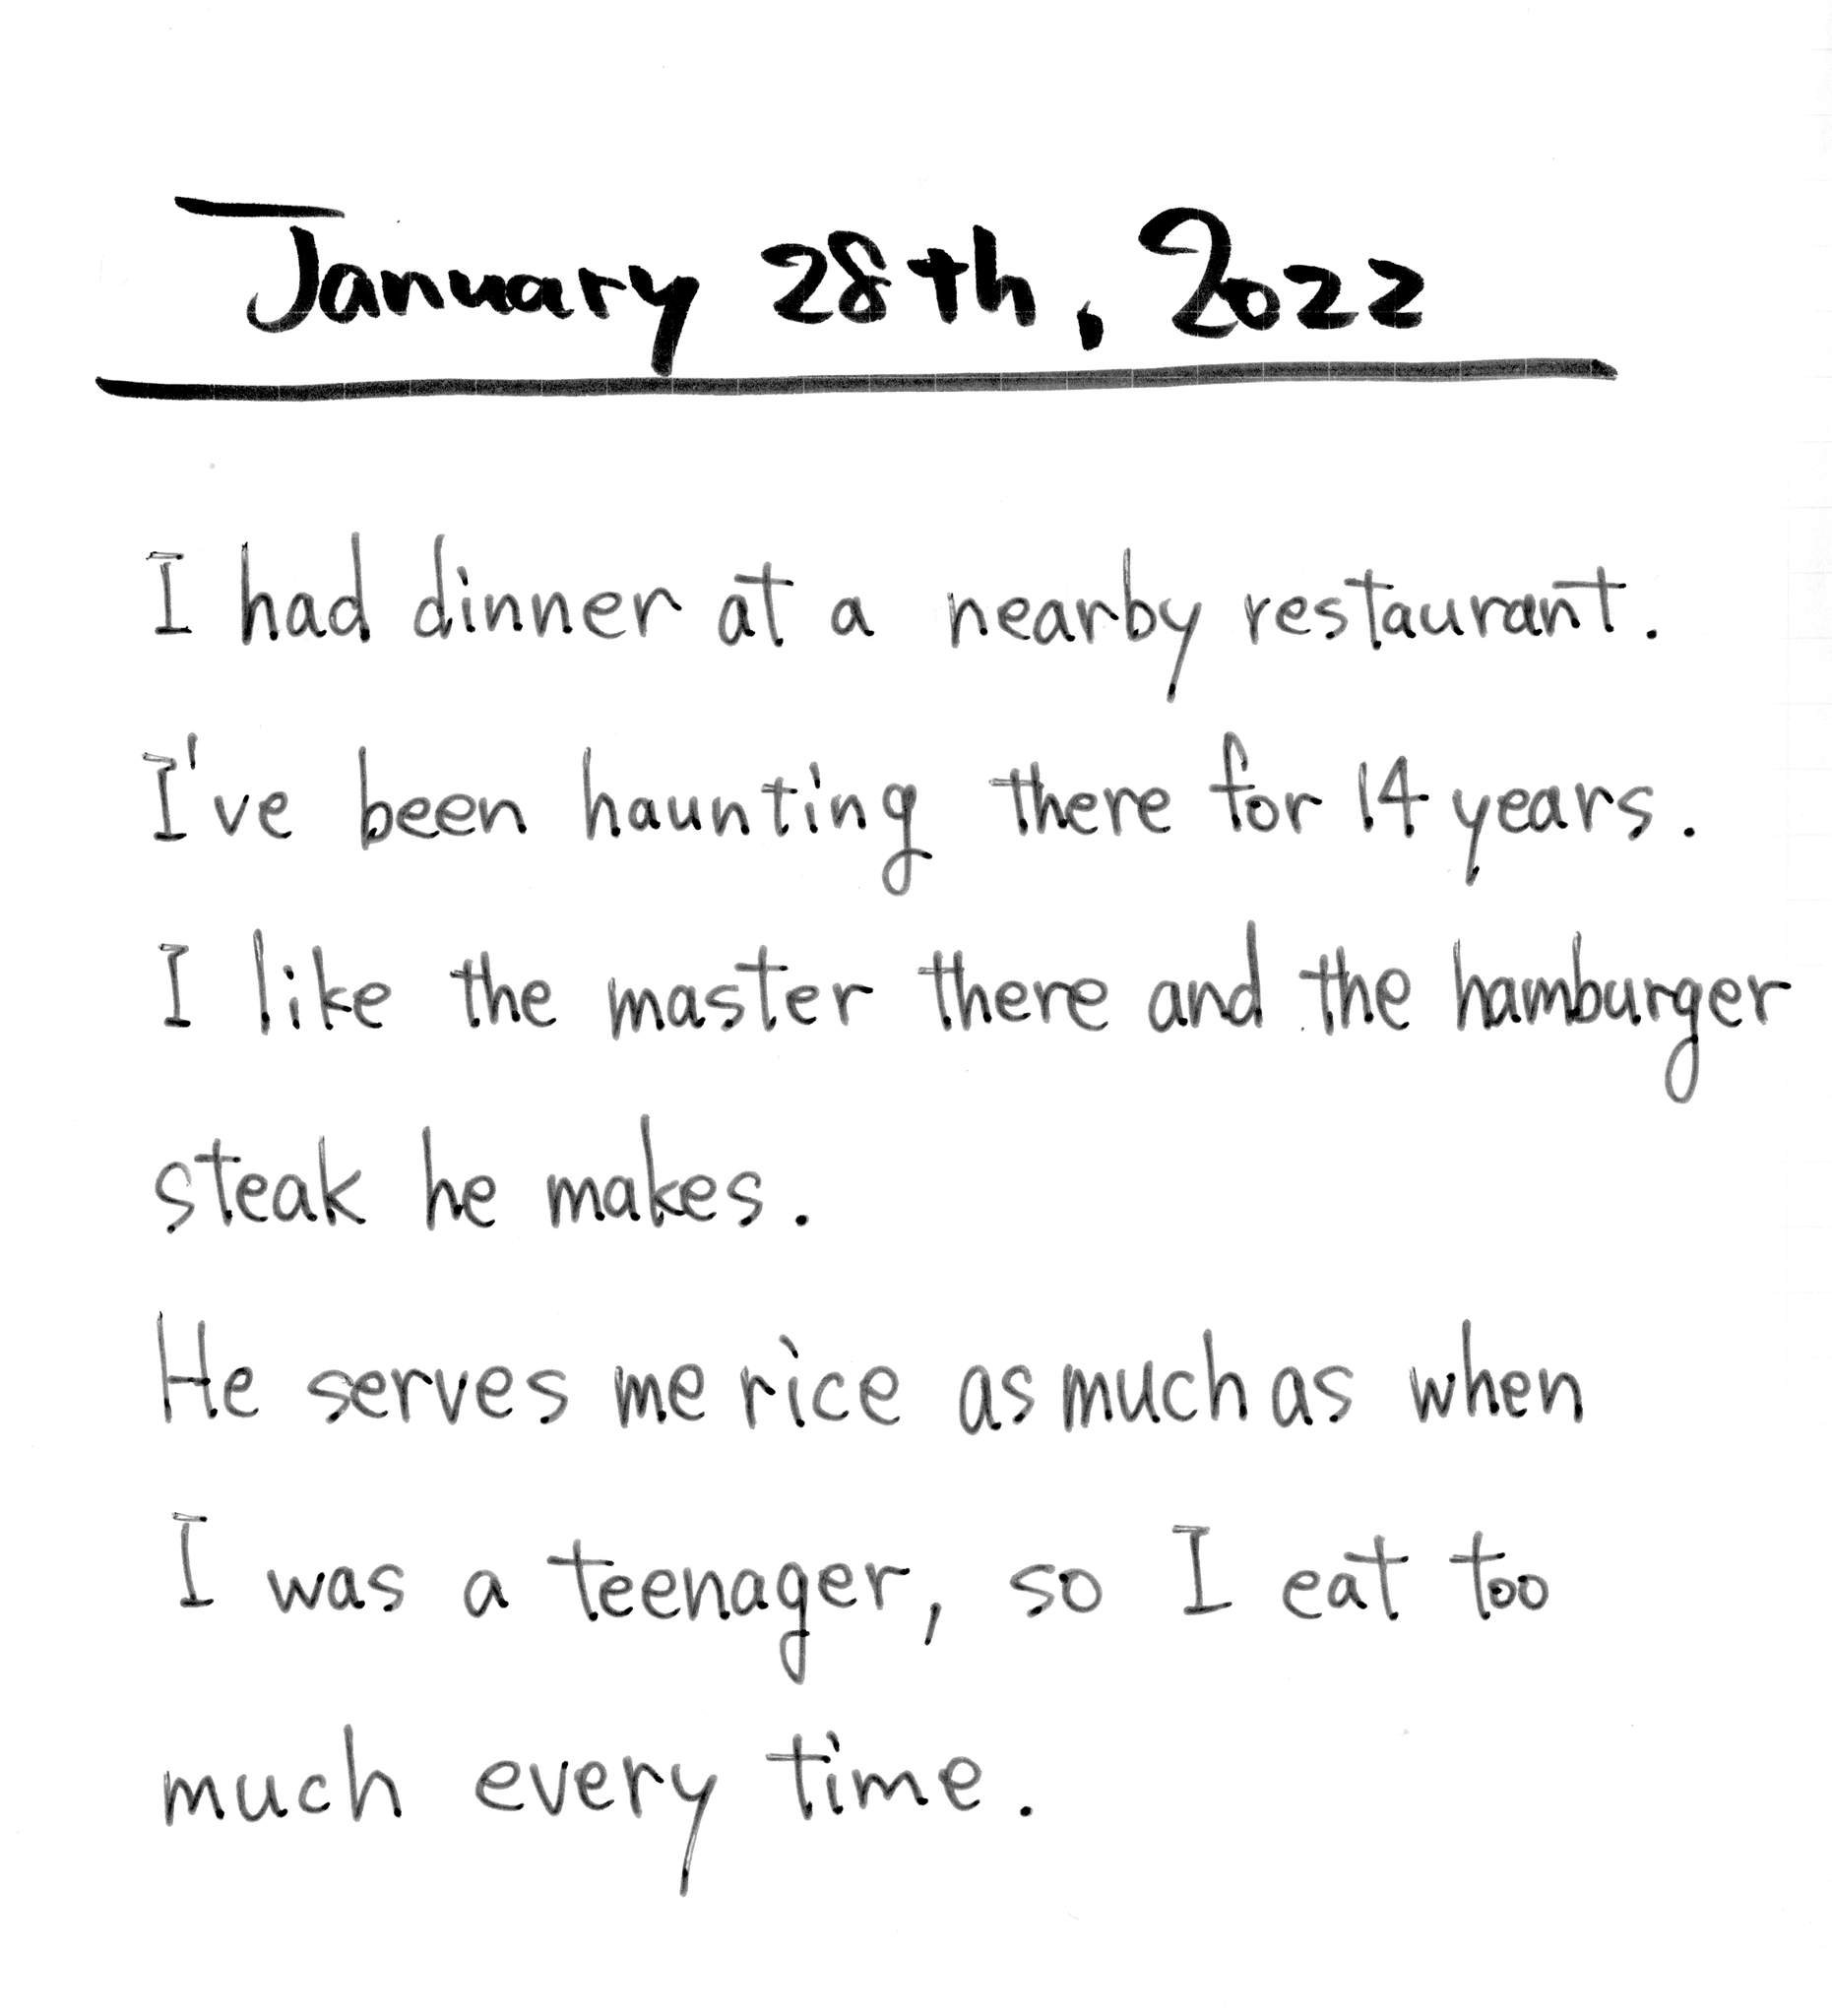 January 28th, 2022
I had dinner at a nearby restaurant.
I've been haunting there for 14 years.
I like the master there and the hamburger
steak he makes.
He serves me rice as much as when
I was a teenager, so I eat too
much every time.